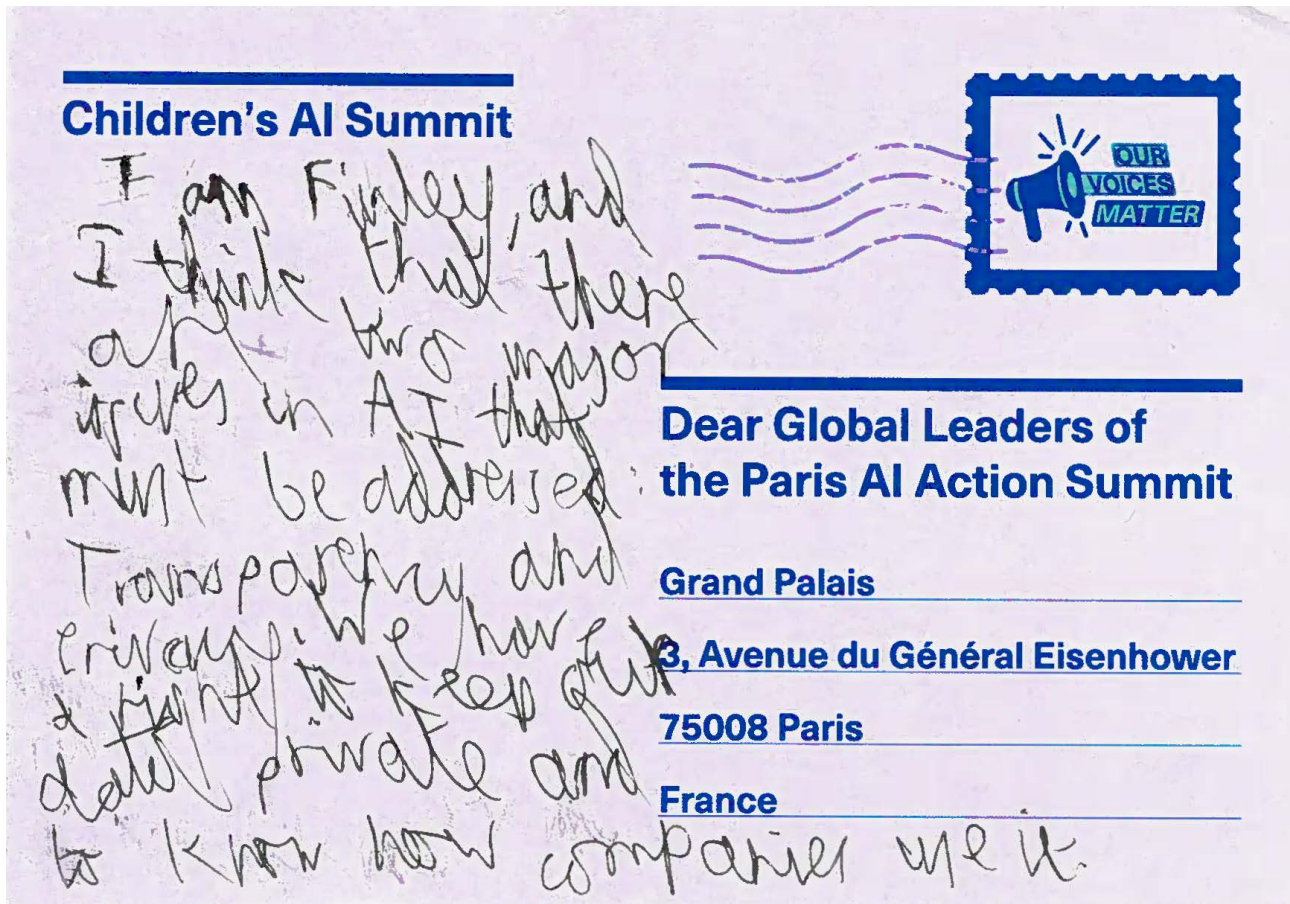 Children's AI Summit
I am Finley, and
I think that there
are two major
issues in AI that
must be addressed:
Transparency and
privacy. We have
a right to keep our
data private and
to know how companies use it.
OUR
VOICES
MATTER
Dear Global Leaders of
the Paris AI Action Summit
Grand Palais
3, Avenue du Général Eisenhower
75008 Paris
France